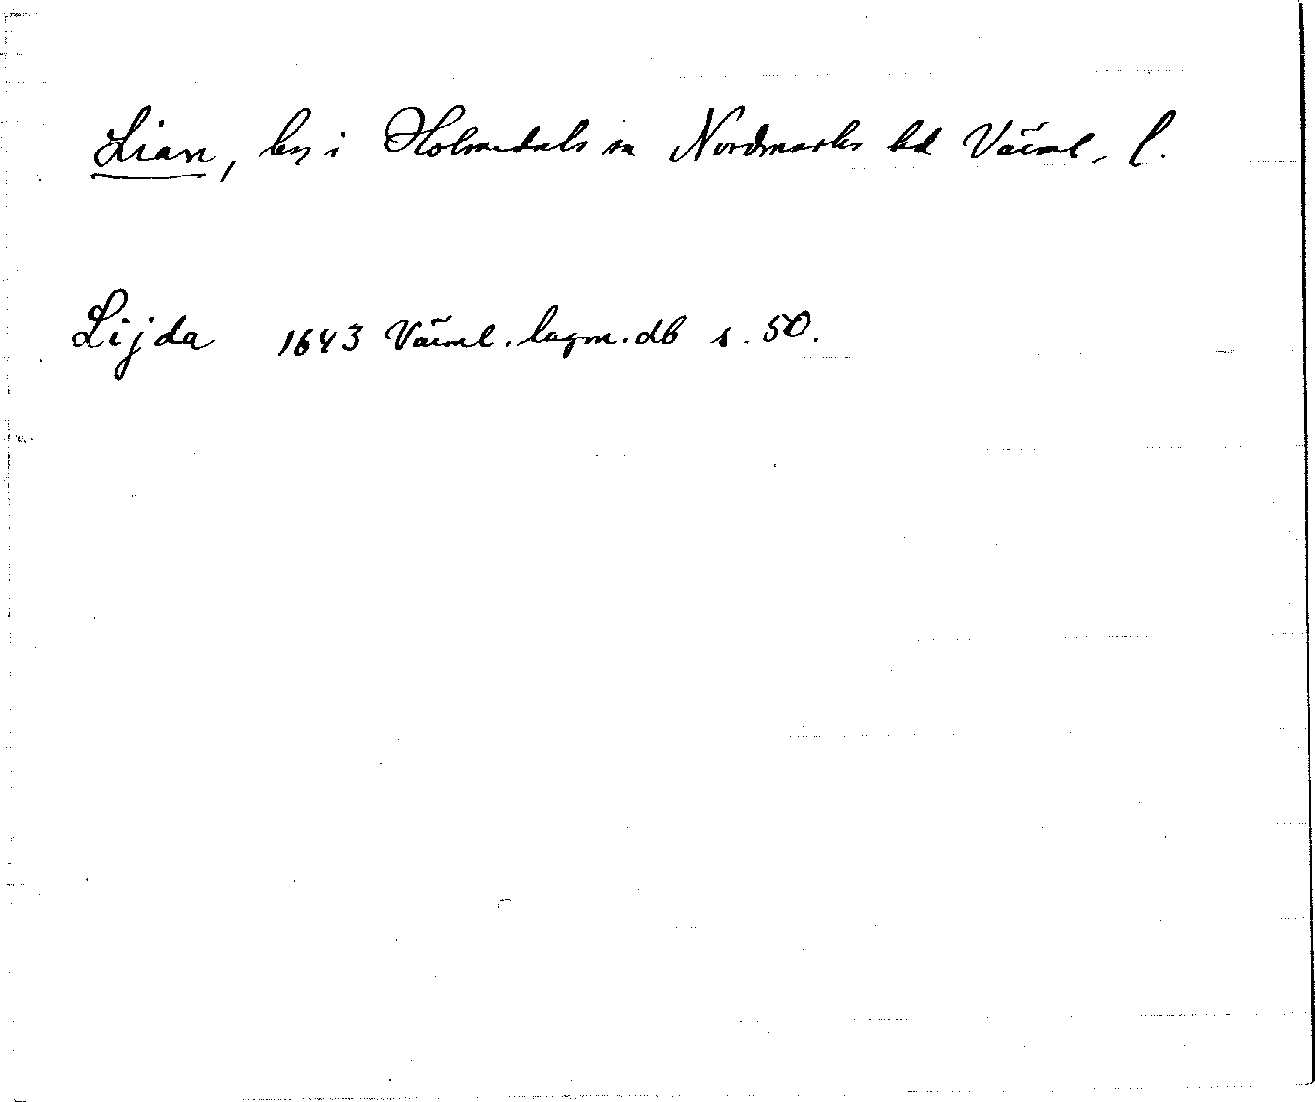 Lian, by i Holmedals sn Nordmarks hd Värml. l.
Lijda 1643 Värml. lagm. db s. 50.